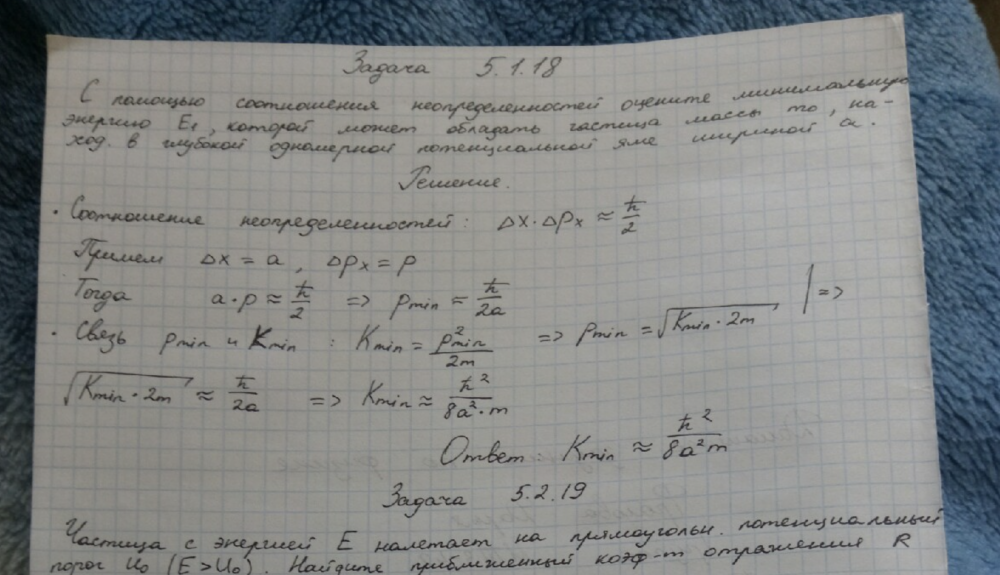 Задача 5.1.18
С помощью соотношения неопределенностей оцените минимальную
энергию E₁, которой может обладать частица массы m₀, на-
ход. в глубокой одномерной потенциальной яме шириной a.
Решение.
· Соотношение неопределенностей: Δx·Δpₓ ≈ ħ/2
Примем Δx = a, Δpₓ = p
Тогда a·p ≈ ħ/2 => pmin ≈ ħ/2a
· Связь pmin и Kmin : Kmin = p²min/2m => pmin = √(Kmin·2m) | =>
√(Kmin·2m) ≈ ħ/2a => Kmin ≈ ħ²/8a²·m
Ответ: Kmin ≈ ħ²/8a²m
Задача 5.2.19
Частица с энергией E налетает на прямоугольн. потенциальный
порог U₀ (E>U₀). Найдите приближенный коэф-т отражения R